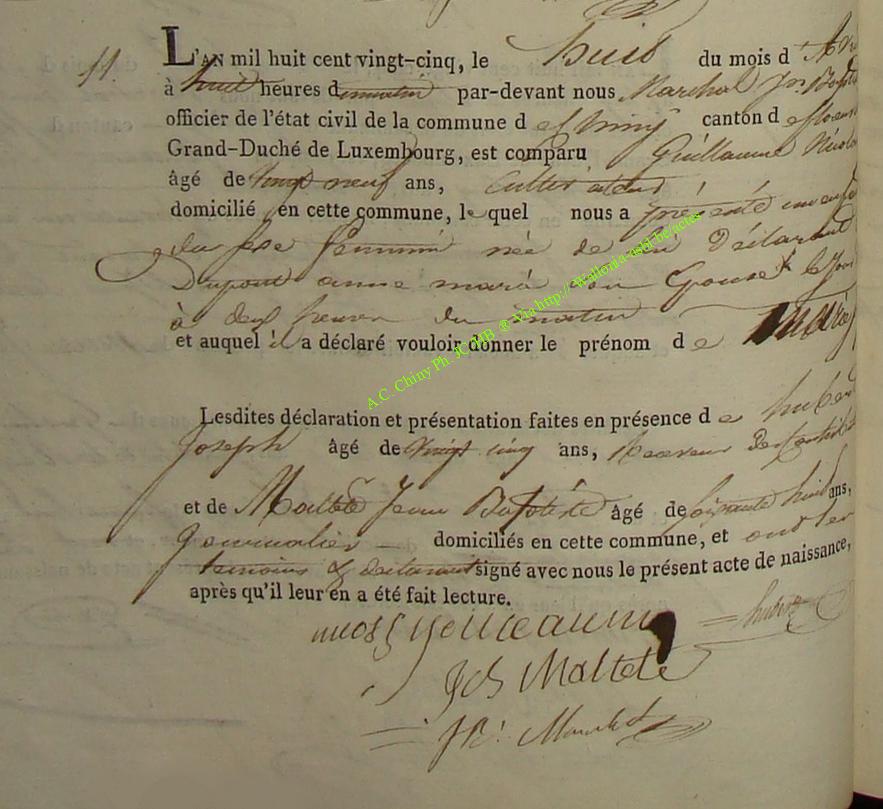 11.
L'AN mil huit cent vingt-cinq, le huit du mois d'
à huit heures du matin par-devant nous Marchal Jn Bapti
officier de l'état civil de la commune de Chiny canton de floren
Grand-Duché de Luxembourg, est comparu Guillaume Nicola
âgé de vingt neuf ans, Cultivateur
domicilié en cette commune, lequel nous a présenté un enfa
du sexe feminin née de lui Déclarant
Dupont anne marie son Epouse le jour
à deux heures du matin
et auquel il a déclaré vouloir donner le prénom de
Lesdites déclaration et présentation faites en présence de huber
Joseph âgé de vingt cinq ans, Receveur
et de Malteté Jean Baptiste âgé de soixante huit ans,
Journalier domiciliés en cette commune, et ont les
temoins & declarant signé avec nous le présent acte de naissance,
après qu'il leur en a été fait lecture.
hubert
Malteté
A.C. Chiny Ph. JC MB @ Via http://.wallonia-asbl.be/actes